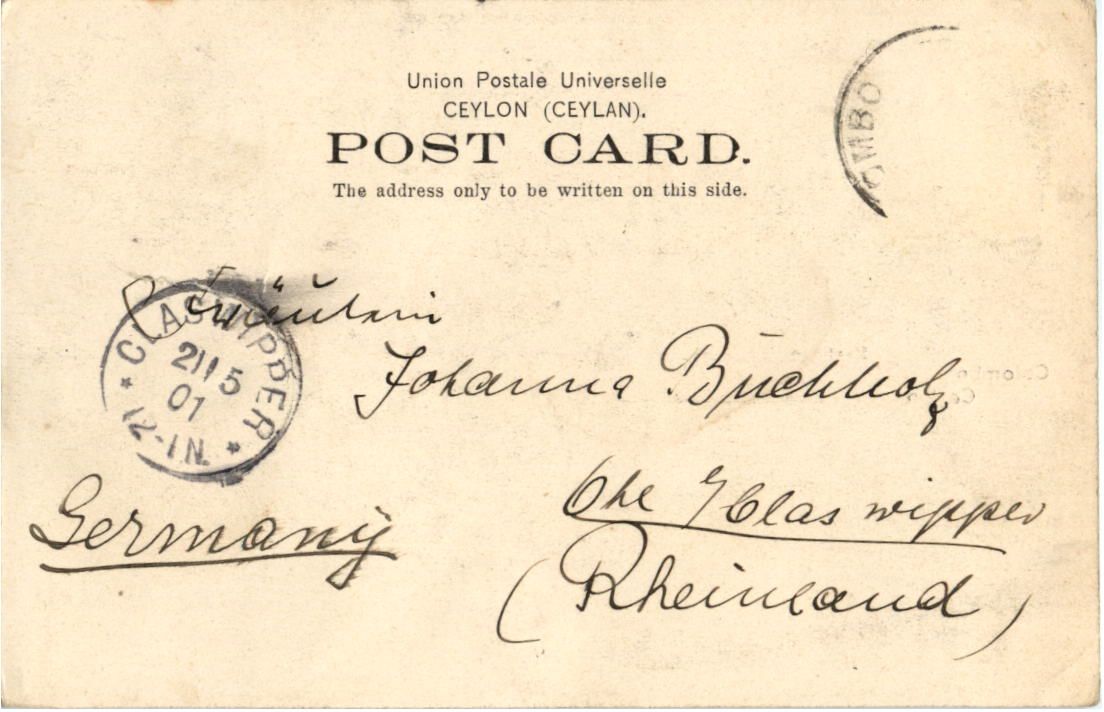 Union Postale Universelle
CEYLON (CEYLAN).
POST CARD.
The address only to be written on this side.
OMBO
Fräulein
CLASWIPPER
21 5
01
12-1N.
Johanna Buchholz
Ohl Claswipper
Germany
(Rheinland)